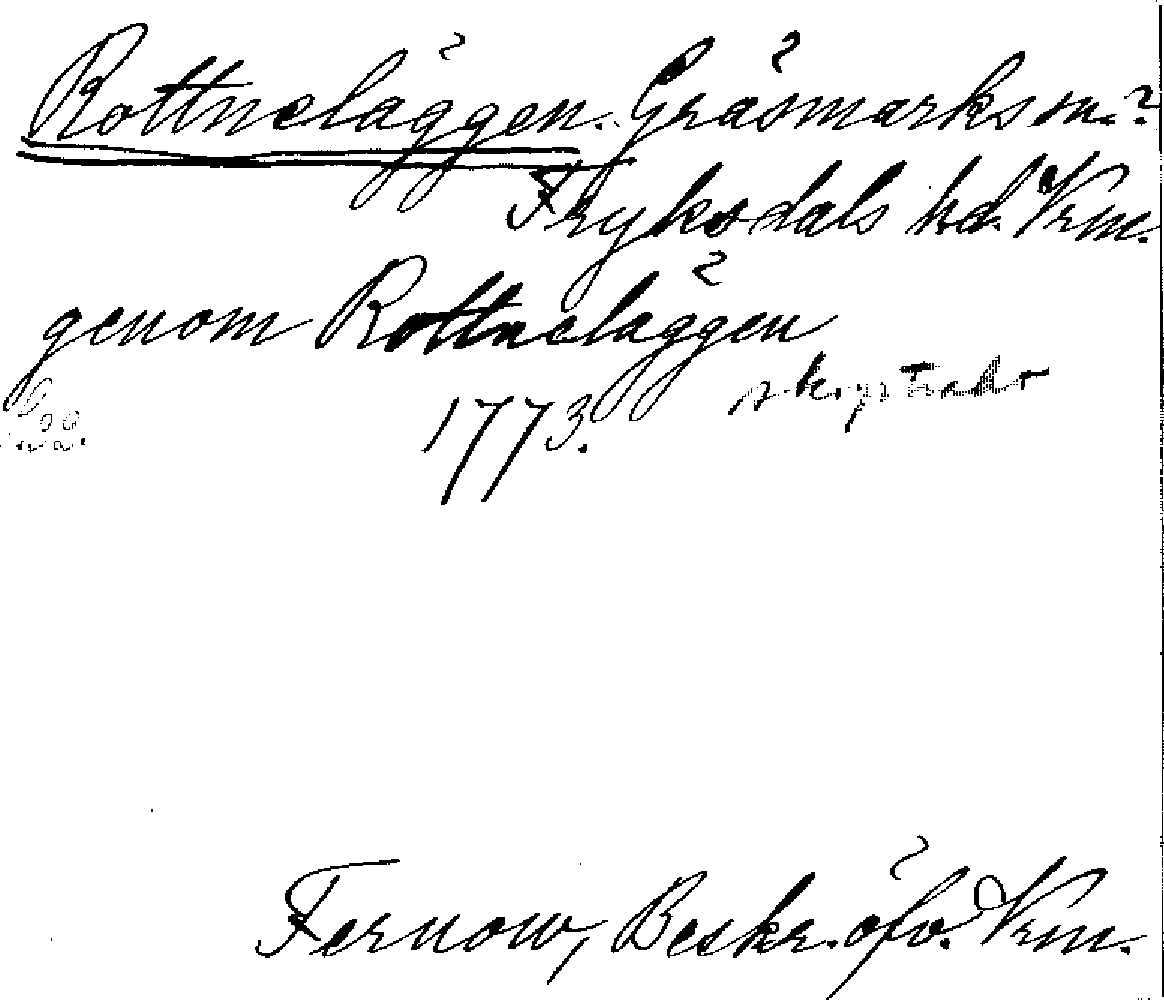 Rottneläggen. Gräsmarks sn.?
Fryksdals hd. Vrm.
genom Rottneläggen
skogstrakt
1773.
Fernow, Beskr. öfv. Vrm.